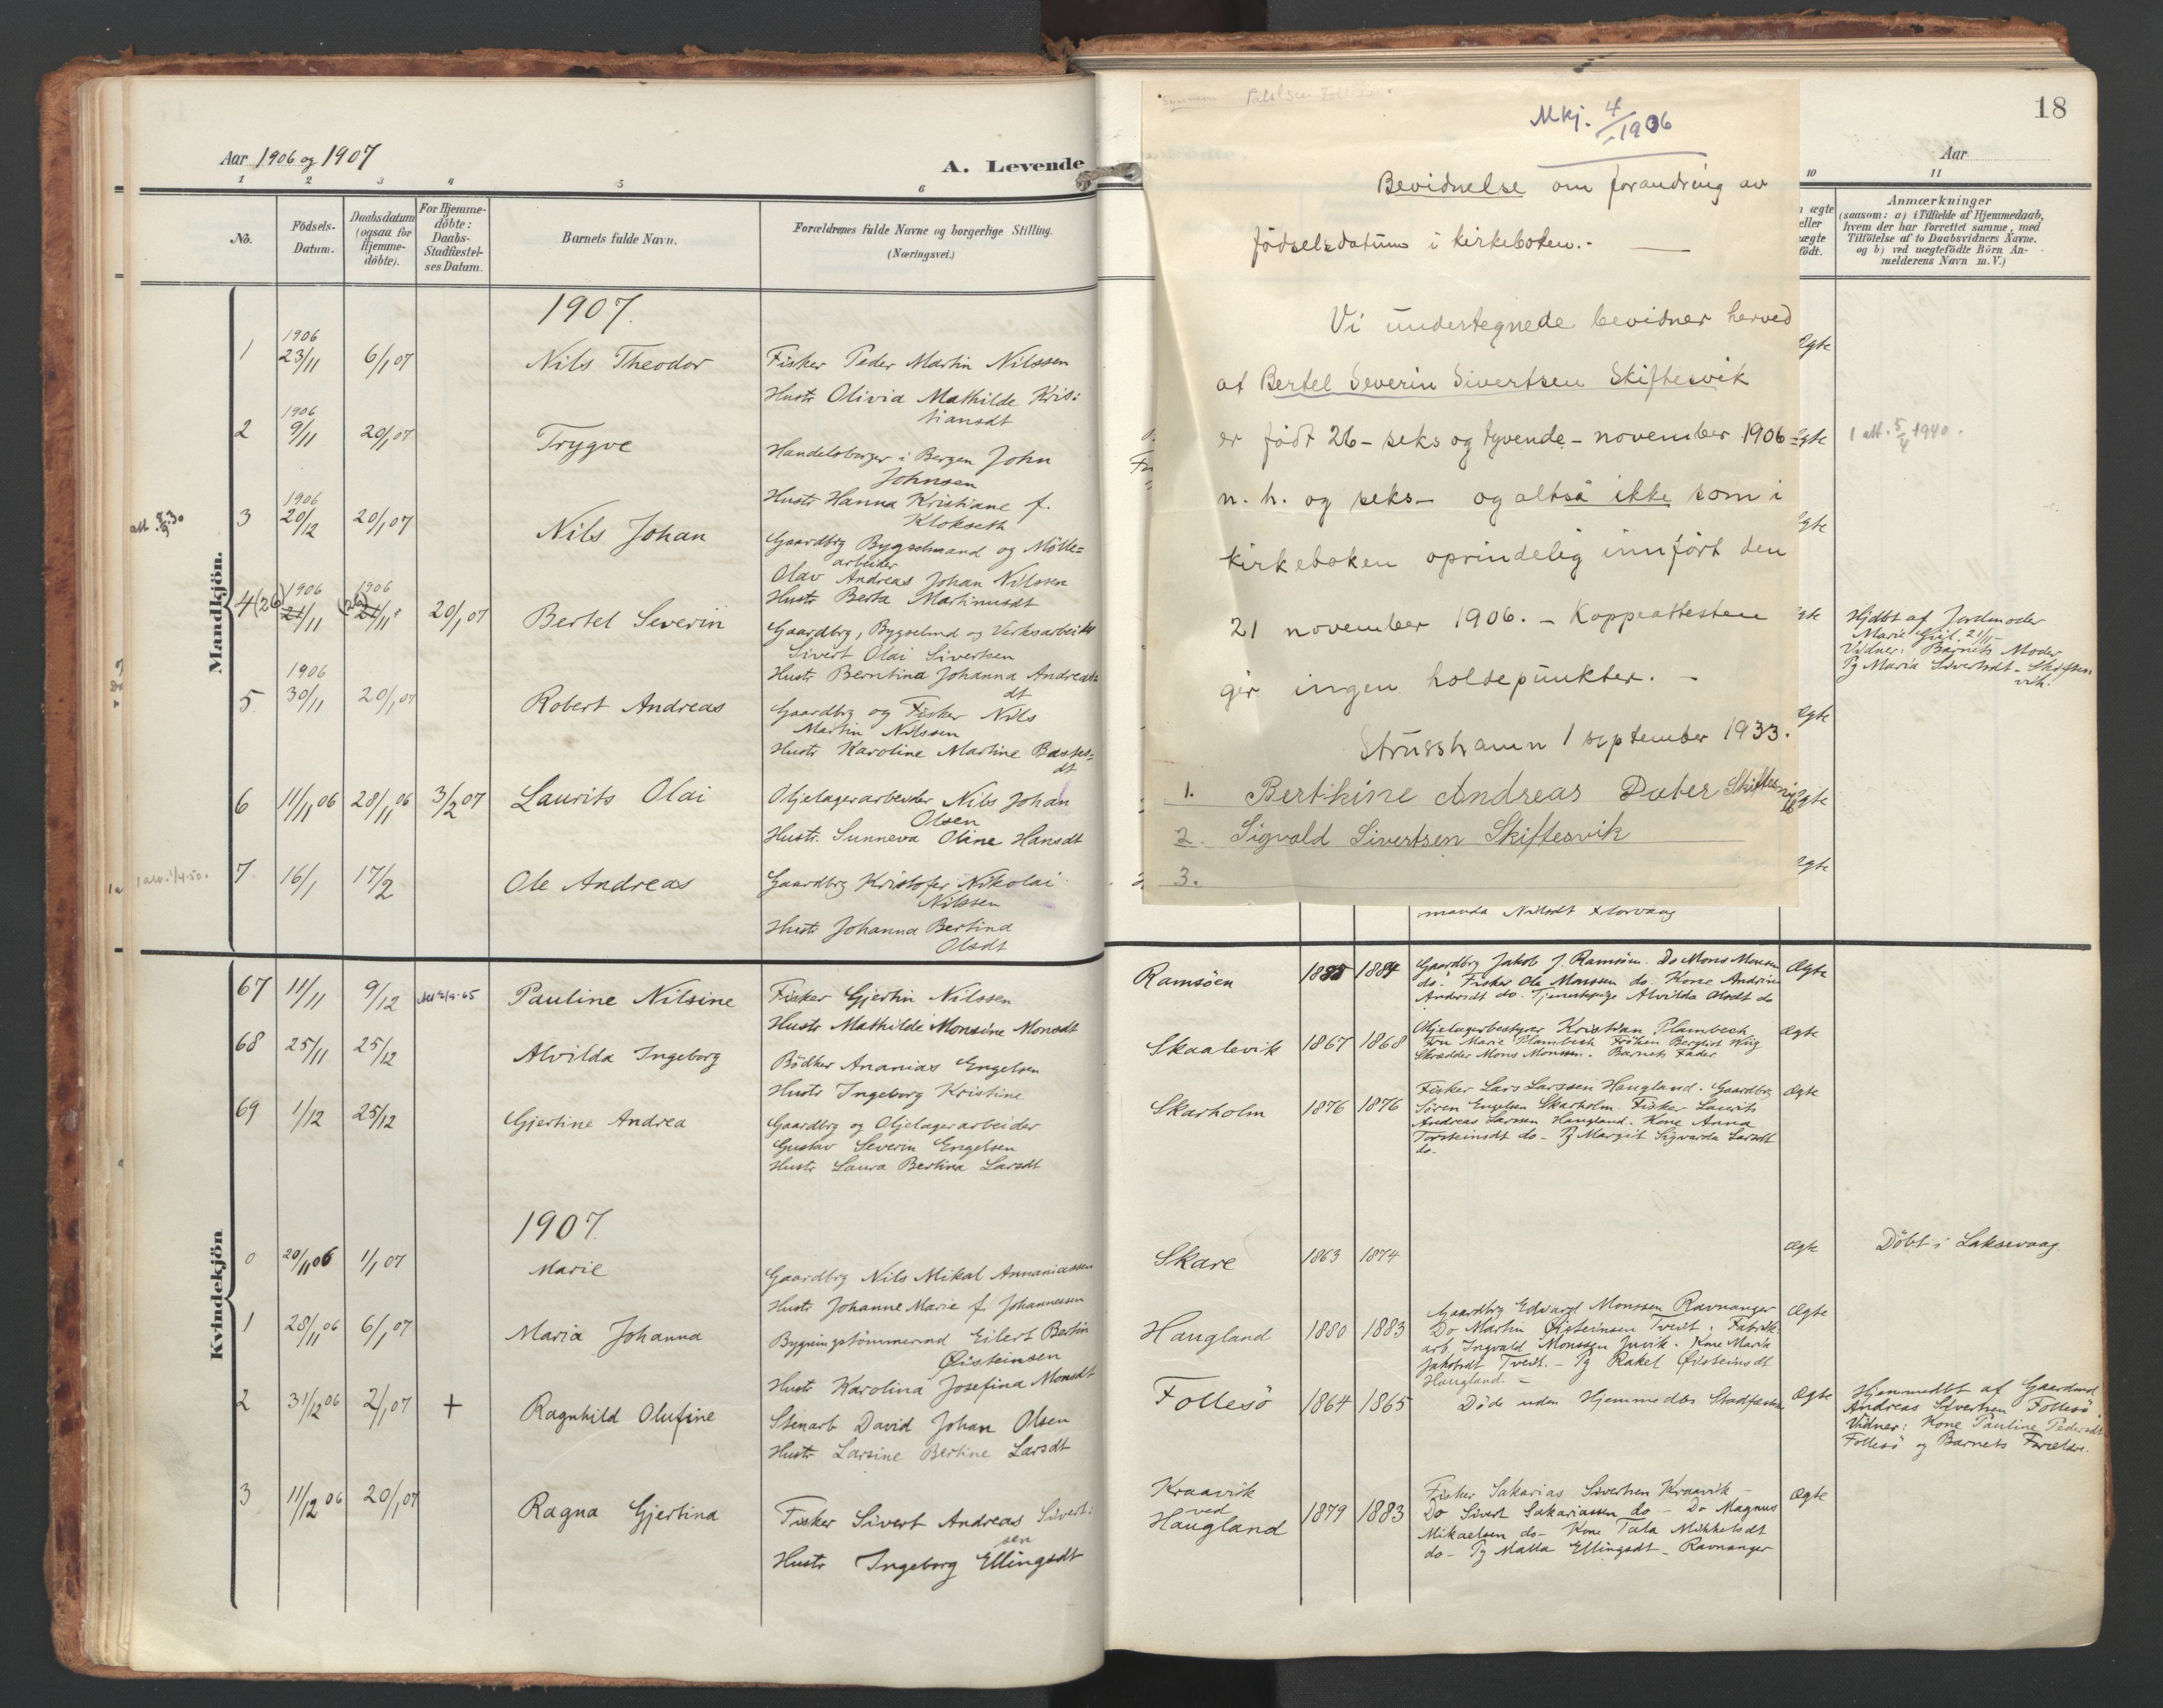 Aar 1906 og 1907
A. Levende
1 2 3 4 5 6
No.
Födsels-
Datum.
Daabsdatum
(ogsaa for
Hjemme-
döbte).
For Hjemme-
döbte:
Daabs-
Stadfæstel-
ses Datum.
Barnets fulde Navn.
Forældrenes fulde Navne og borgerlige Stilling.
(Næringsvei.)
Mandkjön.
1907.
1 1906 23/11 6/1 07 Nils Theodor
Fisker Peder Martin Nilssen
Hustr Olivia Mathilde Kris:
tiansdt
2 1906 9/11 20/1 07 Trygve
Handelsborger i Bergen John
Johnsen
Hustr Hanna Kristiane f.
Klokseth
3 1906 20/12 20/1 07 Nils Johan
Gaardbrg Bygselmand og Mölle=
arbeider
Olav Andreas Johan Nilssen
Hustr Berta Martinusdt
4 (26) 1906 21/11 (26) 1906 21/11 20/1 07 Bertel Severin
Gaardbrg, Bygselmd og Verksarbeider
Sivert Olai Sivertsen
Hustr Berntina Johanna Andreas=
dt
5. 1906 30/11 20/1 07 Robert Andreas
Gaardbrg og Fisker Nils
Martin Nilssen
Hustr Karoline Martine Basses=
dt
6 11/11 06 28/11 06 3/2 07 Laurits Olai
Oljelagerarbeider Nils Johan
Olsen
Hustr. Sunneva Oline Hansdt
7 16/1 17/2 Ole Andreas
Gaardbrg Kristofer Nikolai
Nilssen
Hustr Johanna Bertina
Olsdt
Kvindekjön
67 11/11 9/12 Pauline Nilsine
Fisker Gjertin Nilssen
Hustr Mathilde Monsine Monsdt
68 25/11 25/12 Alvilda Ingeborg
Bödker Ananias Engelsen
Hustr Ingeborg Kristine
69 1/12 25/12 Gjertine Andrea
Gaardbrg og Oljelagerarbeider
Gustav Severin Engelsen
Hustr Laura Bertina Larsdt
1907
0 20/11 06 1/1 07 Marie
Gaardbrg Nils Mikal Annaniassen
Hustr Johanne Marie f. Johannessen
1 28/11 06 6/1 07 Maria Johanna
Bygningstömmermd Eilert Bertin
Øisteinsen
Hustr Karolina Josefina Monsdt
2 31/12 06 2/1 07 + Ragnhild Olufine
Stenarb David Johan Olsen
Hustr Larsine Bertine Larsdt
3 11/12 06 20/1 07 Ragna Gjertina
Fisker Sivert Andreas Sivert:
sen
Hustr Ingeborg Ellingsdt
18
Mkj. 4/-1906
Bevidnelse om forandring av
födselsdatum i kirkeboken.-
Vi undertegnede bevidner herved
at Bertel Severin Sivertsen Skiftesvik
er födt 26 - seks og tyvende - november 1906 =
n. h. og seks - og altså ikke som i
kirkeboken oprindelig innfört den
21 november 1906. - Koppeattesten
gir ingen holdepunkter. -
Strusshamn 1 september 1933.
1. Berthine Andreas Dater Skiftesvik
2. Sigvald Sivertsen Skiftesvik
3.
Aar
10 11
Anmærkninger
(saasom: a) i Tilfælde af Hjemmedaab,
hvem der har forrettet samme, med
Tilföielse af to Daabsvidners Navne.
og b) ved uægtefödte Börn An-
melderens Navn m. V.)
1 att. 5/4 1940.
Hjdbt af Jordmoder
Marie Giil. 21/11 -
Vidner: Barnets Moder
Pg Maria Sivertsdt - Skiftes
vik.
Ramsöen 1885 1884
Gaardbrg Jakob J. Ramsöen. Do Mons Monsen
do. Fisker Ole Monssen do. Kone Andrine
Andersdt do. Tjenestepige Alvilda Olsdt do
Ægte
Skaalevik 1867 1868
Oljelagerbestyrer Kristian Plambech
Fru Marie Plambech Fröken Bergliot Wiig
Skrædder Mons Monssen. Barnets Fader
Ægte
Skarholm 1876 1876
Fisker Lars Larssen Haugland. Gaardbrg
Sören Engelsen Skarholm. Fisker Laurits
Andreas Larssen Haugland. Kone Anna
Torsteinsdt do - Pg Margit Sigvarda Larsdt
do-
Ægte
Skare 1863 1874 Ægte Döbt i Laksevaag.
Haugland 1880 1883
Gaardbrg Edvard Monssen Ravnanger
Do Martin Øisteinsen Tveit. Fabrik-
arb. Ingvald Monssen Juvik. Kone Marie
Jakobsdt Tveit. - Pg Rakel Øisteinsdt
Haugland. -
Ægte
Follesö 1864 1865 Döde uden Hjemmedbs Stadfæstelse Ægte
Hjemmedbt af Gaardmd
Andreas Sivertsen Follesö
Vidner: Kone Pauline Pedersdt
Follesö og Barnets Forældre.
Kraavik
ved
Haugland 1879 1883
Fisker Sakarias Sivertsen Kraavik -
Do Sivert Sakariassen do - Do Magnus
Mikaelsen do - Kone Tala Mikkelsdt
do - Pg Malla Ellingsdt - Ravnanger
Ægte